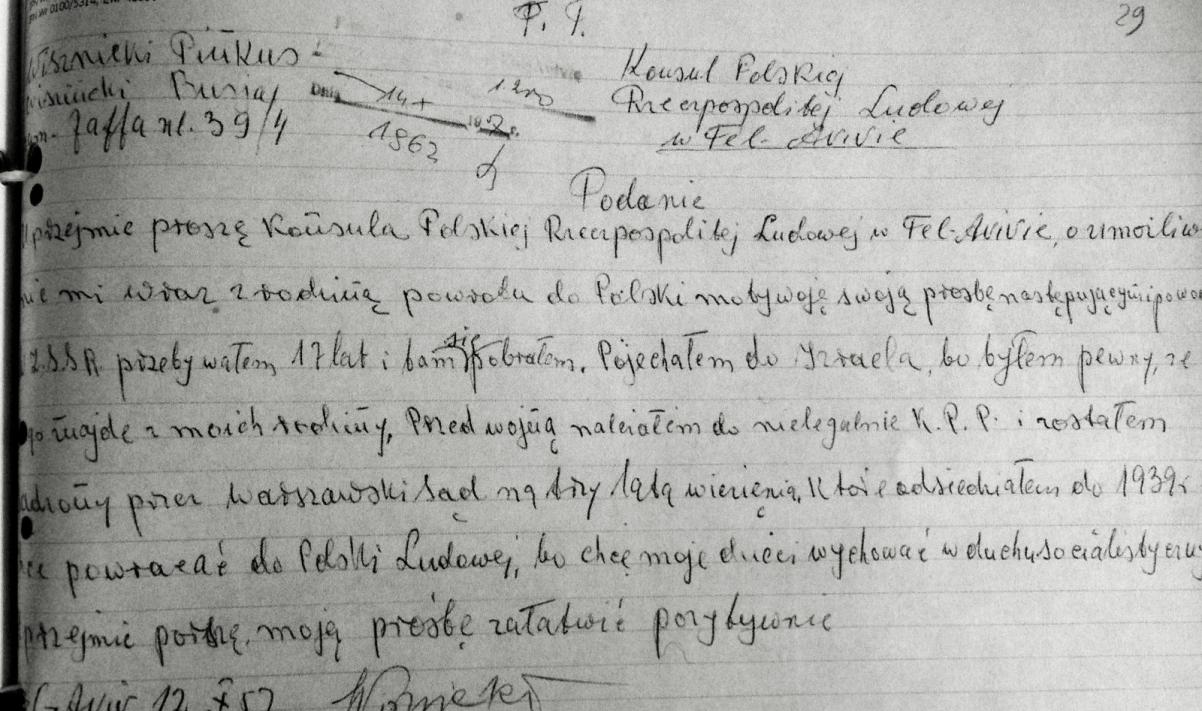 29
P. T.
Wiszniecki Pinkus
Konsul Polskiej
Busia
14 +
Rzeczpospolitej Ludowej
Jaffa ul. 39/4
1862
w Tel-Avivie
Podanie
przejmie proszę Konsula Polskiej Rzeczpospolitej Ludowej w Tel-Avivie, o umożliw
nie mi wraz z rodziną powrotu do Polski motywuję swoją prośbę następującymi powo
Z.S.S.R przebywałem 17 lat i tam się pobrałem. Pojechałem do Izraela, bo byłem pewny, że
go znajdę z moich rodziny. Przed wojną należałem do nielegalnie K.P.P. i zostałem
ądzony przez warszawski Sąd na trzy lata więzienia, które odsiedziałem do 1939r
cę powracać do Polski Ludowej, bo chcę moje dzieci wychować w duchu socialistyczny
przejmie porszę moją prośbę załatwić pozytywnie
Aviv 12 X 57